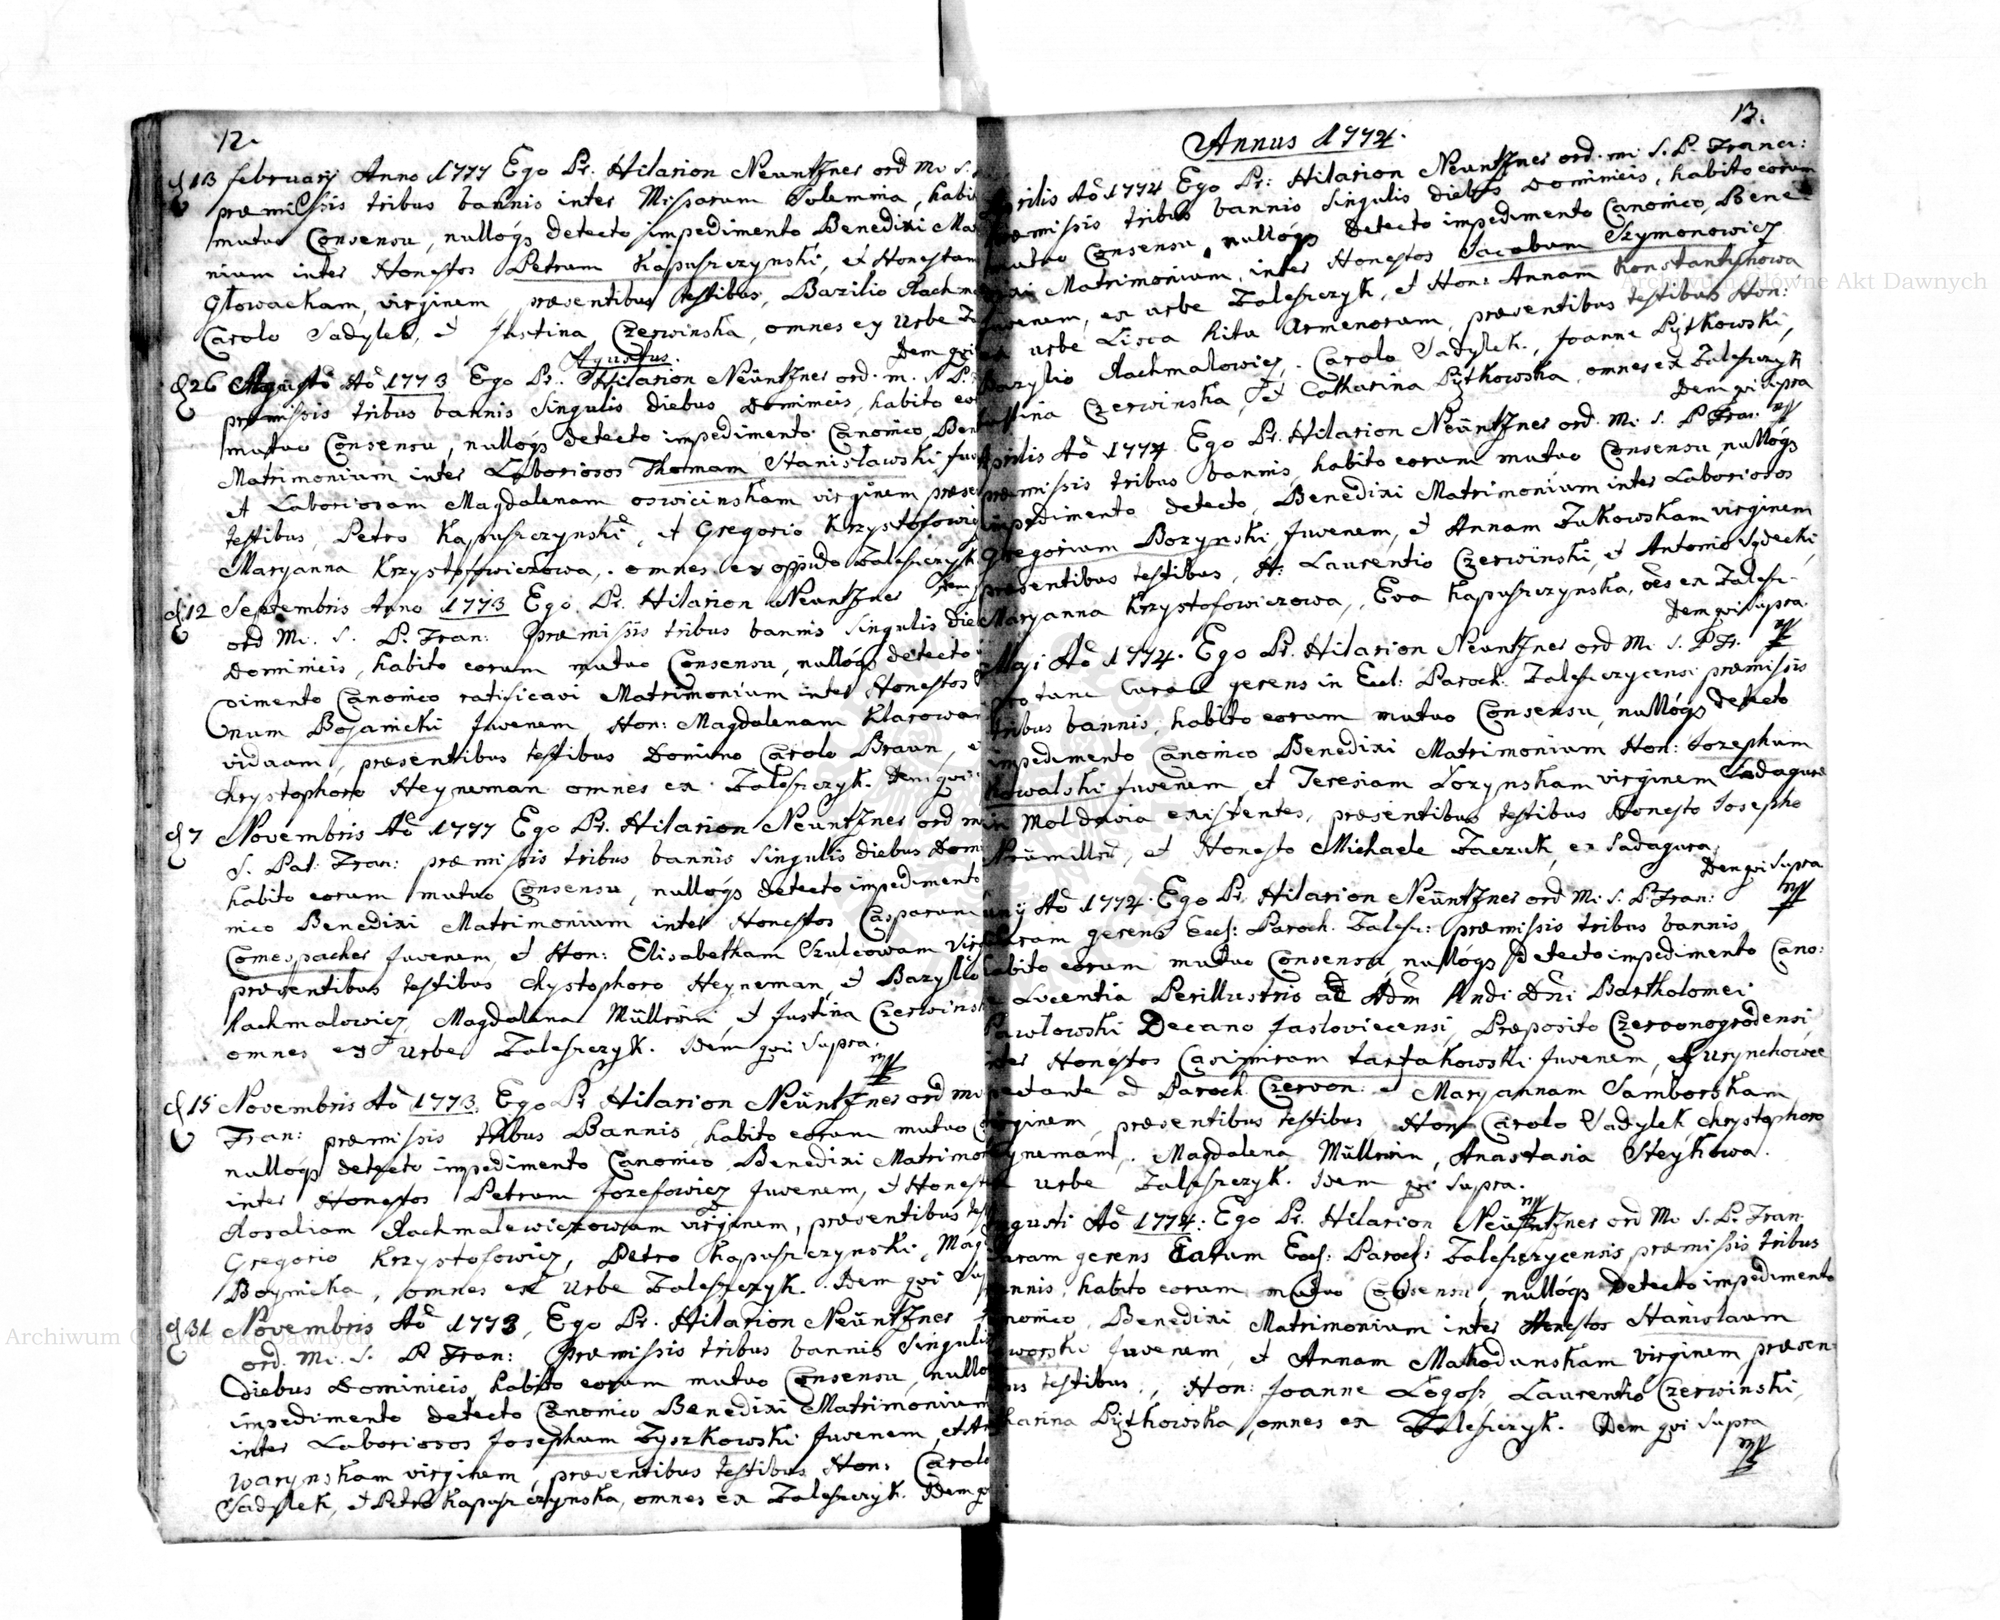 12.
d 13 februarij Anno 1777 Ego Pr. Hilarion Neuntzner ord Mi. S.
præmissis tribus bannis inter Missarum Solemnia, habi
mutuo Consensu, nullóqs detecto impedimento Benedixi Ma
nium inter Honestos Petrum Kapuszczynski, et Honestam
Głowackam, virginem, præsentibus testibus, Bazilio Rachm
Carolo Sadylek, et Justina Czerwinska, omnes ex Urbe Z
Idem qvi
Agustus.
d 26 Augusti Aō 1773 Ego Pr. Hilarion Neüntzner ord. m. S. P.
præmissis tribus bannis singulis diebus Dominicis, habito eor
mutuo Consensu, nullóqs detecto impedimento Canonico, Ben
Matrimonium inter Laboriosos Thomam Stanisławski Juv
et Laboriosam Magdalenam oswicinskam virginem præse
testibus, Petro Kapuszczynski, et Gregorio Krzystofowicz
Maryanna Krzystofowiczowa, omnes ex oppido Zaleszczyk
Idem
d 12 Septembris Anno 1773 Ego Pr. Hilarion Neuntzner
ord Mi. S. P. Fran: præmissis tribus bannis singulis die
Dominicis, habito eorum mutuo Consensu, nullóqs detecto
dimento Canonico ratificavi Matrimonium inter Honestos
num Bojanicki Juvenem Hon: Magdalenam Klarowa
viduam, præsentibus testibus Domino Carolo Braun, e
Chrystophoro Heyneman omnes ex Zaleszczyk. Idem qvi
d 7 Novembris Aō 1777 Ego Pr. Hilarion Neuntzner ord m
S. Pat: Fran: præmissis tribus bannis singulis diebus Domi
habito eorum mutuo Consensu, nullóqs detecto impedimento
nico Benedixi Matrimonium inter Honestos Casparum
Comespacher Juvenem, et Hon: Elisabetham Szulcowam virg
præsentibus testibus Chystophoro Heyneman, et Bazyllio
Rachmalowicz, Magdalena Müllerin, et Justina Czerwinsk
omnes ex Urbe Zaleszczyk. Idem qvi Supra.
d 15 Novembris Aō 1773. Ego Pr Hilarion Neüntzner ord mi
Fran: præmissis tribus Bannis, habito eorum mutuo C
nullóqs detecto impedimento Canonico, Benedixi Matrimon
inter Honestos Petrum Jozefowicz Juvenem, et Honest
Rosaliam Rachmalewiczowam virginem, præsentibus tes
Gregorio Krzystofowicz, Petro Kapuszczynski, Mag
Boynicka, omnes ex Urbe Zaleszczyk. Idem qvi Sup
d 31 Novembris Aō 1773, Ego Pr. Hilarion Neüntzner
ord. Mi. S. P. Fran: præmissis tribus bannis Singulis
diebus Dominicis, habito eorum mutuo Consensu, nullo
impedimento detecto Canonico Benedixi Matrimonium
inter Laboriosos Josephum Zyszkowski Juvenem, et An
Warynskam virginem, præsentibus testibus Hon: Carol
Sadylek, et Petro Kapuszczynska, omnes ex Zaleszczyk. Idem q
13.
Annus 1774.
prilis Aō 1774 Ego Pr: Hilarion Neuntzner ord. mi. S. P. Franci:
præmissis tribus bannis singulis diebus Dominicis, habito eorum
mutuo Consensu, nullóqs Detecto impedimento Canonico, Bene
dixi Matrimonium, inter Honestos Jacobum Szymonowicz
Juvenem, ex urbe Zaleszczyk, et Hon: Annam Konstantynowa
ex urbe Lisca Ritu Armenorum, præsentibus testibus Hon:
Bazylio Rachmalowicz, Carolo Sadylek, Joanne Pytkowski,
Justina Czerwinska, et Catharina Pytkowska, omnes ex Zaleszczyk
Idem qvi Supra
Aprilis Aō 1774 Ego Pr. Hilarion Neüntzner ord. Mi. S. P Fran.
præmissis tribus bannis, habito eorum mutuo Consensu, nullóqs
impedimento detecto, Benedixi Matrimonium inter Laboriosos
Gregorium Bozynski, Juvenem, et Annam Zukowskam virginem
præsentibus testibus, H: Laurentio Czerwinski, et Antonio Sydecki,
Maryanna Krzystofowiczowa, Eva Kapuszczynska, oēs ex Zalesz-
Idem qvi Supra.
Maji Aō 1774. Ego Pr. Hilarion Neuntzner ord Mi. S. P Fr.
pro tunc Curam gerens in Eccl: Paroch: Zaleszczycensi præmissis
tribus bannis, habito eorum mutuo Consensu, nullóqs detecto
impedimento Canonico Benedixi Matrimonium Hon: Jozephum
Kowalski Juvenem, et Teresiam Lozynskam virginem Sadagura
in Moldavia existentes, præsentibus testibus Honesto Josepho
et Honesto Michaele Zaczuk, ex Sadagura.
Idem qvi Supra
unij Aō 1774. Ego Pr. Hilarion Neüntzner ord Mi. S. P. Fran:
Curam gerens Eccl: Paroch. Zalesz: præmissis tribus bannis
habito eorum mutuo Consensu, nullóqs detecto impedimento Cano:
Licentia Perillustris ad Adm Rndi Dni Bartholomei
Pawłowski Decano Jasloviecensi, Præposito Czerwonogrodensi,
inter Honestos Casimirum tartakowski Juvenem, ex Uhrynchowce
ad Paroch Czervon: et Maryannam Samborskam
virginem, præsentibus testibus Hon Carolo Sadylek, Chrystophoro
Heyneman, Magdalena Müllerin, Anastasia Steykowa.
ex urbe Zaleszczyk. Idem qvi Supra.
ugusti Aō 1774: Ego Pr. Hilarion Neüntzner ord Mi. S. P. Fran.
Curam gerens Eccl: Paroch: Zaleszczycensis præmissis tribus
bannis, habito eorum mutuo Consensu, nullóqs Detecto impedimento
Canonico, Benedixi Matrimonium inter Honestos Stanislaum
Juvenem, et Annam Makodanskam virginem, præsen
bus testibus, Hon: Joanne Logosz, Laurentio Czerwinski,
Catharina Pytkowska, omnes ex Zaleszczyk. Idem qvi Supra
Archiwum Główne Akt Dawnych
Archiwum Główne Akt Dawnych